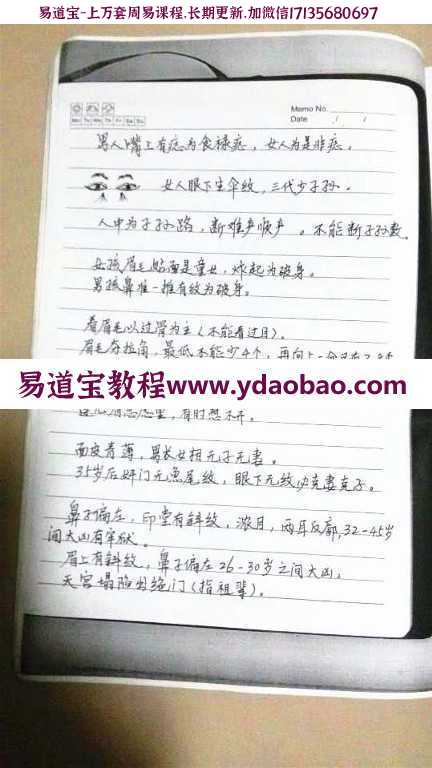 易道宝-上万套周易课程.长期更新.加微信17135680697
Memo No.
Date / /
Mo Tu We Th Fr Sa Su
男人嘴上有痣为食禄痣，女人为是非痣。
女人眼下生伞纹，三代少子孙。
人中为子孙路，断难产顺产。不能断子孙数。
女孩眉毛贴面是童女，炸起为破身。
男孩鼻准一推有纹为破身。
看眉毛以过骨为主（不能看过目）。
眉毛夺拉角，最低不能少4个，再向上一分
易道宝教程www.ydaobao.com
有时想不开。
面皮青薄，男长女相无子无妻。
35岁后奸门无鱼尾纹，眼下无纹必克妻克子。
鼻子偏左，印堂有斜纹，浓眉，两耳反廓，32-45岁
间大凶有牢狱。
眉上有斜纹，鼻子偏左26-30岁之间大凶，
天宫塌陷出绝门（指祖辈）。